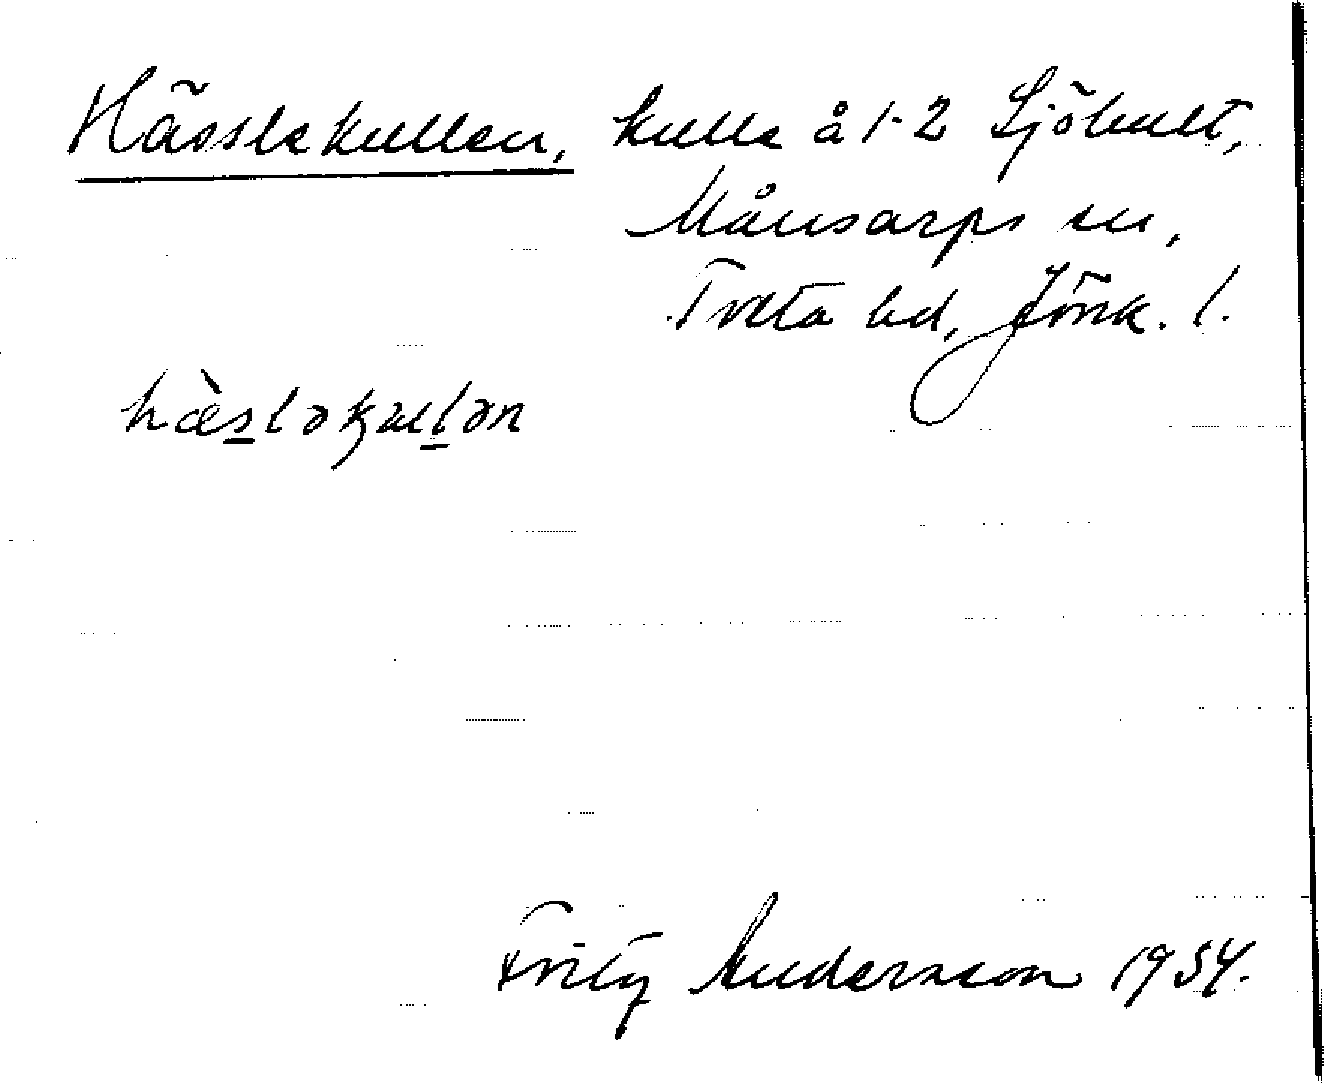 Hässlekullen, kulle å 1-2 Sjöhult,
Månsarps sn,
Tveta hd, Jönk. l.
hæ̀sləkulən
Fritz Andersson 1934.